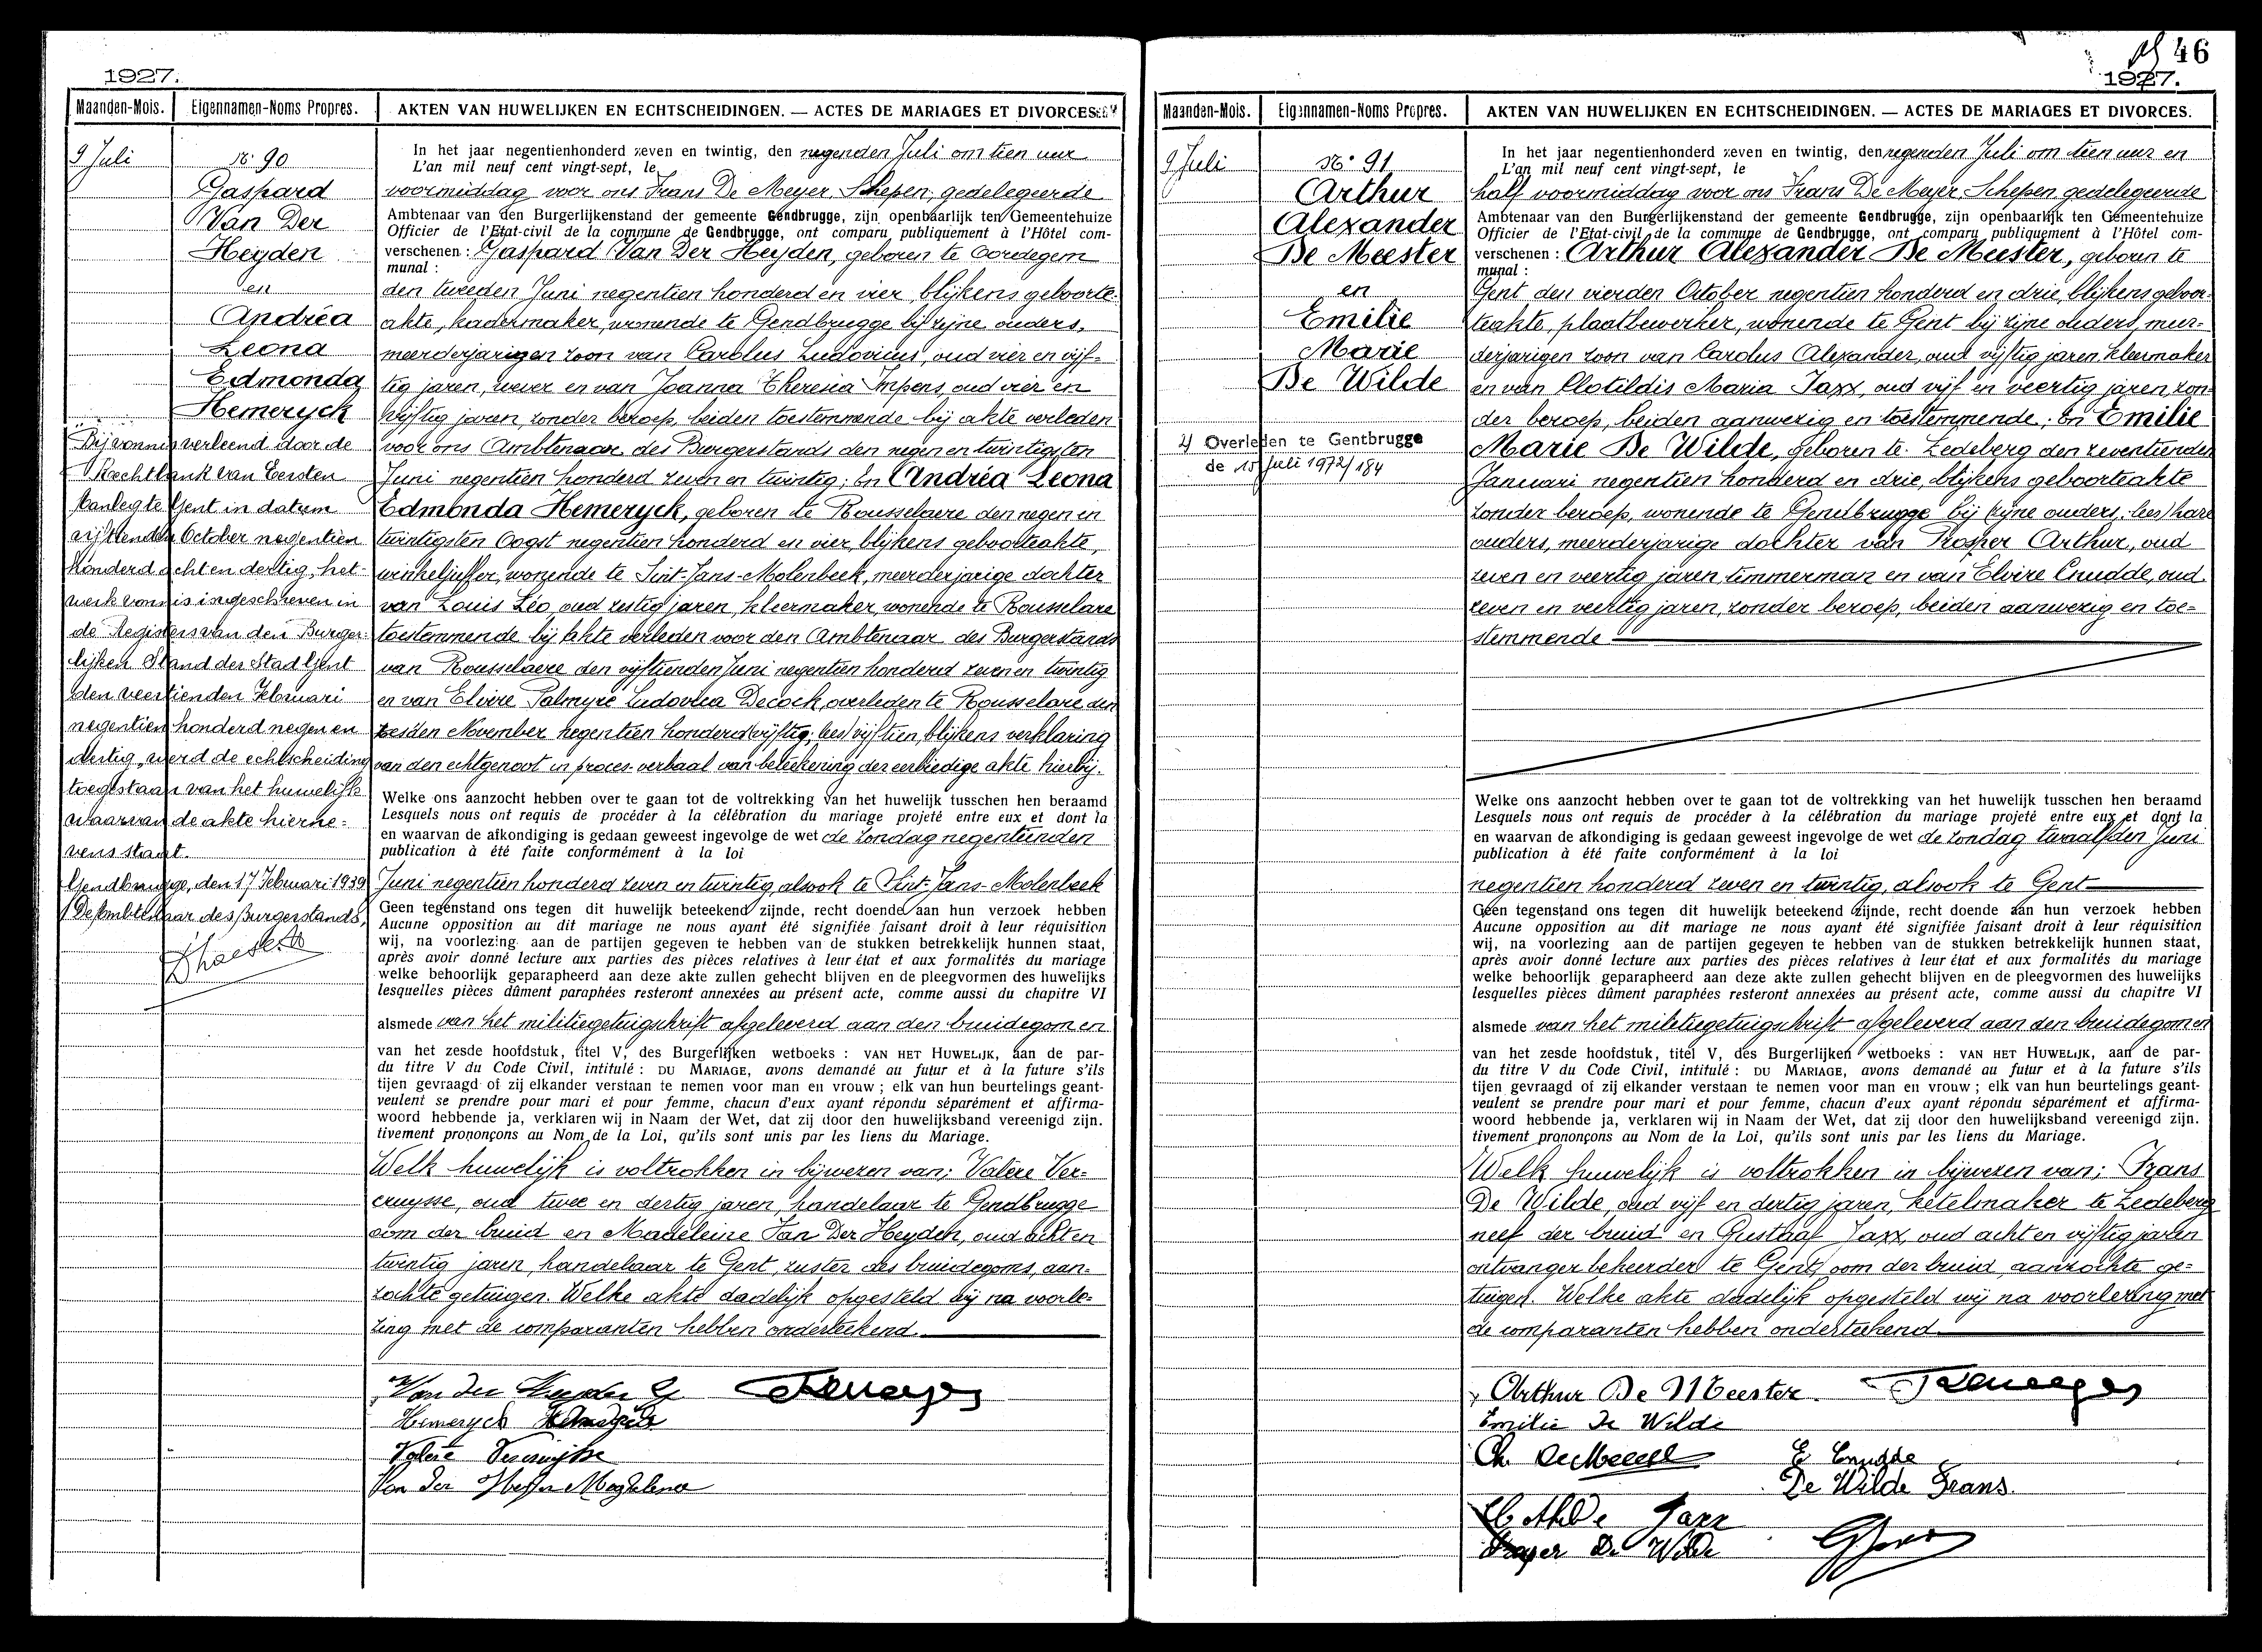 1927.
Maanden-Mois. Eigennamen-Noms Propres. AKTEN VAN HUWELIJKEN EN ECHTSCHEIDINGEN. — ACTES DE MARIAGES ET DIVORCES.
9 Juli
No. 90
Gaspard
Van Der
Heyden
en
Andréa
Leona
Edmonda
Hemeryck
Bij vonnis verleend door de
Rechtbank van Eersten
Aanleg te Gent in datum
vijftienden October negentien
honderd acht en dertig, het-
welk vonnis ingeschreven in
de Registers van den Burger-
lijken Stand der Stad Gent
den veertienden Februari
negentien honderd negen en
dertig, werd de echtscheiding
toegestaan van het huwelijk
waarvan de akte hierne=
vens staat.
Gendbrugge, den 17 Februari 1939
De Ambtenaar des Burgerstands,
In het jaar negentienhonderd zeven en twintig, den negenden Juli om tien uur
L'an mil neuf cent vingt-sept, le
voormiddag voor ons Frans De Meyer, Schepen, gedelegeerde
Ambtenaar van den Burgerlijkenstand der gemeente Gendbrugge, zijn openbaarlijk ten Gemeentehuize
Officier de l'Etat-civil de la commune de Gendbrugge, ont comparu publiquement à l'Hôtel com-
verschenen : Gaspard Van Der Heyden, geboren te Oordegem
munal :
den tweeden Juni negentien honderd en vier, blijkens geboorte-
akte, kadermaker, wonende te Gendbrugge bij zijne ouders,
meerderjarigen zoon van Carolus Ludovicus, oud vier en vijf-
tig jaren, wever en van Joanna Theresia Impens, oud vier en
vijftig jaren, zonder beroep, beiden toestemmende bij akte verleden
voor ons Ambtenaar des Burgerstands den negen en twintigsten
Juni negentien honderd zeven en twintig; En Andréa Leona
Edmonda Hemeryck, geboren te Rousselaere den negen en
twintigsten Oogst negentien honderd en vier, blijkens geboorteakte,
winkeljuffer, wonende te Sint-Jans-Molenbeek, meerderjarige dochter
van Louis Léo, oud zestig jaren, kleermaker, wonende te Rousselare
toestemmende bij akte verleden voor den Ambtenaar des Burgerstands
van Rousselaere den vijftienden Juni negentien honderd zeven en twintig
en van Elvire Palmyre Ludovica Decock, overleden te Rousselare den
zesden November negentien honderd (vijftig; lees) vijftien, blijkens verklaring
van den echtgenoot in proces-verbaal van beteekening der eerbiedige akte hierbij.
Welke ons aanzocht hebben over te gaan tot de voltrekking van het huwelijk tusschen hen beraamd
Lesquels nous ont requis de procéder à la célébration du mariage projeté entre eux et dont la
en waarvan de afkondiging is gedaan geweest ingevolge de wet de zondag negentienden
publication à été faite conformément à la loi
Juni negentien honderd zeven en twintig, alsook te Sint-Jans-Molenbeek
Geen tegenstand ons tegen dit huwelijk beteekend zijnde, recht doende aan hun verzoek hebben
Aucune opposition au dit mariage ne nous ayant été signifiée faisant droit à leur réquisition
wij, na voorlezing aan de partijen gegeven te hebben van de stukken betrekkelijk hunnen staat,
après avoir donné lecture aux parties des pièces relatives à leur état et aux formalités du mariage
welke behoorlijk geparapheerd aan deze akte zullen gehecht blijven en de pleegvormen des huwelijks
lesquelles pièces dûment paraphées resteront annexées au présent acte, comme aussi du chapitre VI
alsmede van het militiegetuigschrift afgeleverd aan den bruidegom en
van het zesde hoofdstuk, titel V, des Burgerlijken wetboeks : VAN HET HUWELIJK, aan de par-
du titre V du Code Civil, intitulé : DU MARIAGE, avons demandé au futur et à la future s'ils
tijen gevraagd of zij elkander verstaan te nemen voor man en vrouw ; elk van hun beurtelings geant-
veulent se prendre pour mari et pour femme, chacun d'eux ayant répondu séparément et affirma-
woord hebbende ja, verklaren wij in Naam der Wet, dat zij door den huwelijksband vereenigd zijn.
tivement prononçons au Nom de la Loi, qu'ils sont unis par les liens du Mariage.
Welk huwelijk is voltrokken in bijwezen van; Valère Ver=
cruysse, oud twee en dertig jaren, handelaar te Gendbrugge
oom der bruid en Madeleine Van Der Heyden, oud acht en
twintig jaren, handelaar te Gent, zuster des bruidegoms, aan-
zochte getuigen. Welke akte dadelijk opgesteld wij na voorle=
zing met de comparanten hebben onderteekend.
Van der Heyden G
Hemeryck
Valère Vercruysse
Van der Heyden Magdalena
46
1927.
Maanden-Mois. Eigennamen-Noms Propres. AKTEN VAN HUWELIJKEN EN ECHTSCHEIDINGEN. — ACTES DE MARIAGES ET DIVORCES.
9 Juli
No. 91
Arthur
Alexander
De Meester
en
Emilie
Marie
De Wilde
2) Overleden te Gentbrugge
de 15 juli 1972/184
In het jaar negentienhonderd zeven en twintig, den negenden Juli om tien uur en
L'an mil neuf cent vingt-sept, le
half voormiddag voor ons Frans De Meyer, Schepen, gedelegeerde
Ambtenaar van den Burgerlijkenstand der gemeente Gendbrugge, zijn openbaarlijk ten Gemeentehuize
Officier de l'Etat-civil de la commune de Gendbrugge, ont comparu publiquement à l'Hôtel com-
verschenen : Arthur Alexander De Meester, geboren te
munal :
Gent den vierden October negentien honderd en drie, blijkens geboor-
teakte, plaatbewerker, wonende te Gent bij zijne ouders, meer-
derjarigen zoon van Carolus Alexander, oud vijftig jaren, kleermaker
en van Clotildis Maria Jaxx, oud vijf en veertig jaren, zon-
der beroep, beiden aanwezig en toestemmende; En Emilie
Marie De Wilde, geboren te Ledeberg den zeventienden
Januari negentien honderd en drie, blijkens geboorteakte
zonder beroep, wonende te Gendbrugge bij (zijne ouders; lees) hare
ouders, meerderjarige dochter van Prosper Arthur, oud
zeven en veertig jaren, timmerman en van Elvire Cnudde, oud
zeven en veertig jaren, zonder beroep, beiden aanwezig en toe=
stemmende
Welke ons aanzocht hebben over te gaan tot de voltrekking van het huwelijk tusschen hen beraamd
Lesquels nous ont requis de procéder à la célébration du mariage projeté entre eux et dont la
en waarvan de afkondiging is gedaan geweest ingevolge de wet de zondag twaalfden Juni
publication à été faite conformément à la loi
negentien honderd zeven en twintig, alsook te Gent
Geen tegenstand ons tegen dit huwelijk beteekend zijnde, recht doende aan hun verzoek hebben
Aucune opposition au dit mariage ne nous ayant été signifiée faisant droit à leur réquisition
wij, na voorlezing aan de partijen gegeven te hebben van de stukken betrekkelijk hunnen staat,
après avoir donné lecture aux parties des pièces relatives à leur état et aux formalités du mariage
welke behoorlijk geparapheerd aan deze akte zullen gehecht blijven en de pleegvormen des huwelijks
lesquelles pièces dûment paraphées resteront annexées au présent acte, comme aussi du chapitre VI
alsmede van het militiegetuigschrift afgeleverd aan den bruidegom en
van het zesde hoofdstuk, titel V, des Burgerlijken wetboeks : VAN HET HUWELIJK, aan de par-
du titre V du Code Civil, intitulé : DU MARIAGE, avons demandé au futur et à la future s'ils
tijen gevraagd of zij elkander verstaan te nemen voor man en vrouw ; elk van hun beurtelings geant-
veulent se prendre pour mari et pour femme, chacun d'eux ayant répondu séparément et affirma-
woord hebbende ja, verklaren wij in Naam der Wet, dat zij door den huwelijksband vereenigd zijn.
tivement prononçons au Nom de la Loi, qu'ils sont unis par les liens du Mariage.
Welk huwelijk is voltrokken in bijwezen van; Frans
De Wilde, oud vijf en dertig jaren, ketelmaker te Ledeberg
neef der bruid en Gustaaf Jaxx, oud acht en vijftig jaren
ontvanger beheerder te Gent, oom der bruid, aanzochte ge=
tuigen. Welke akte dadelijk opgesteld wij na voorlezing met
de comparanten hebben onderteekend
Arthur De Meester
Emilie De Wilde
Ch. De Meester E Cnudde
De Wilde Frans.
Clothilde Jaxx
Prosper De Wilde